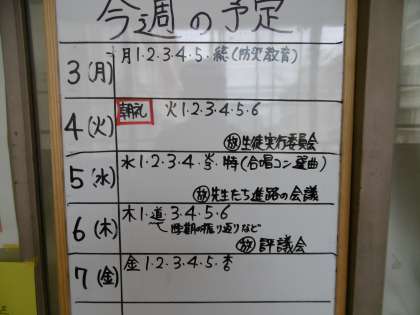 今週の予定
3(月) 月1・2・3・4・5・総(防災教育)
4(火) 朝礼 火1・2・3・4・5・6
放 生徒実行委員会
5(水) 水1・2・3・4・学・特(合唱コン選曲)
放 先生たち進路の会議
6(木) 木1・道 3・4・5・6
学期の振り返りなど
放 評議会
7(金) 金1・2・3・4・5・